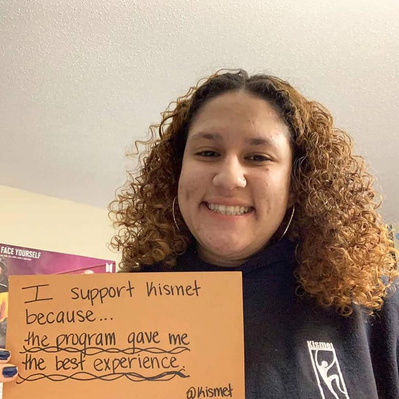 FACE YOURSELF
I support Kismet
because...
the program gave me
the best experience.
@Kismet
Kismet